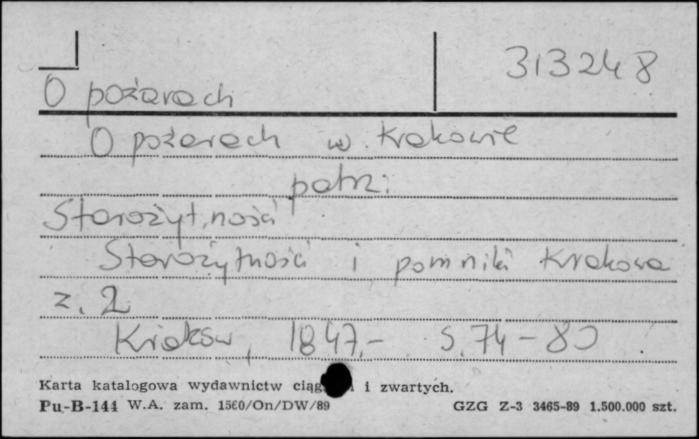 313248
O pożarach
O pożarach w Krakowie
patrz:
Starożytności
Starożytności i pomniki Krakowa
z. 2
Kraków, 1847.- S. 74-80
Karta katalogowa wydawnictw i zwartych.
Pu-B-144 W.A. zam. 1560/On/DW/89 GZG Z-3 3465-89 1.500.000 szt.